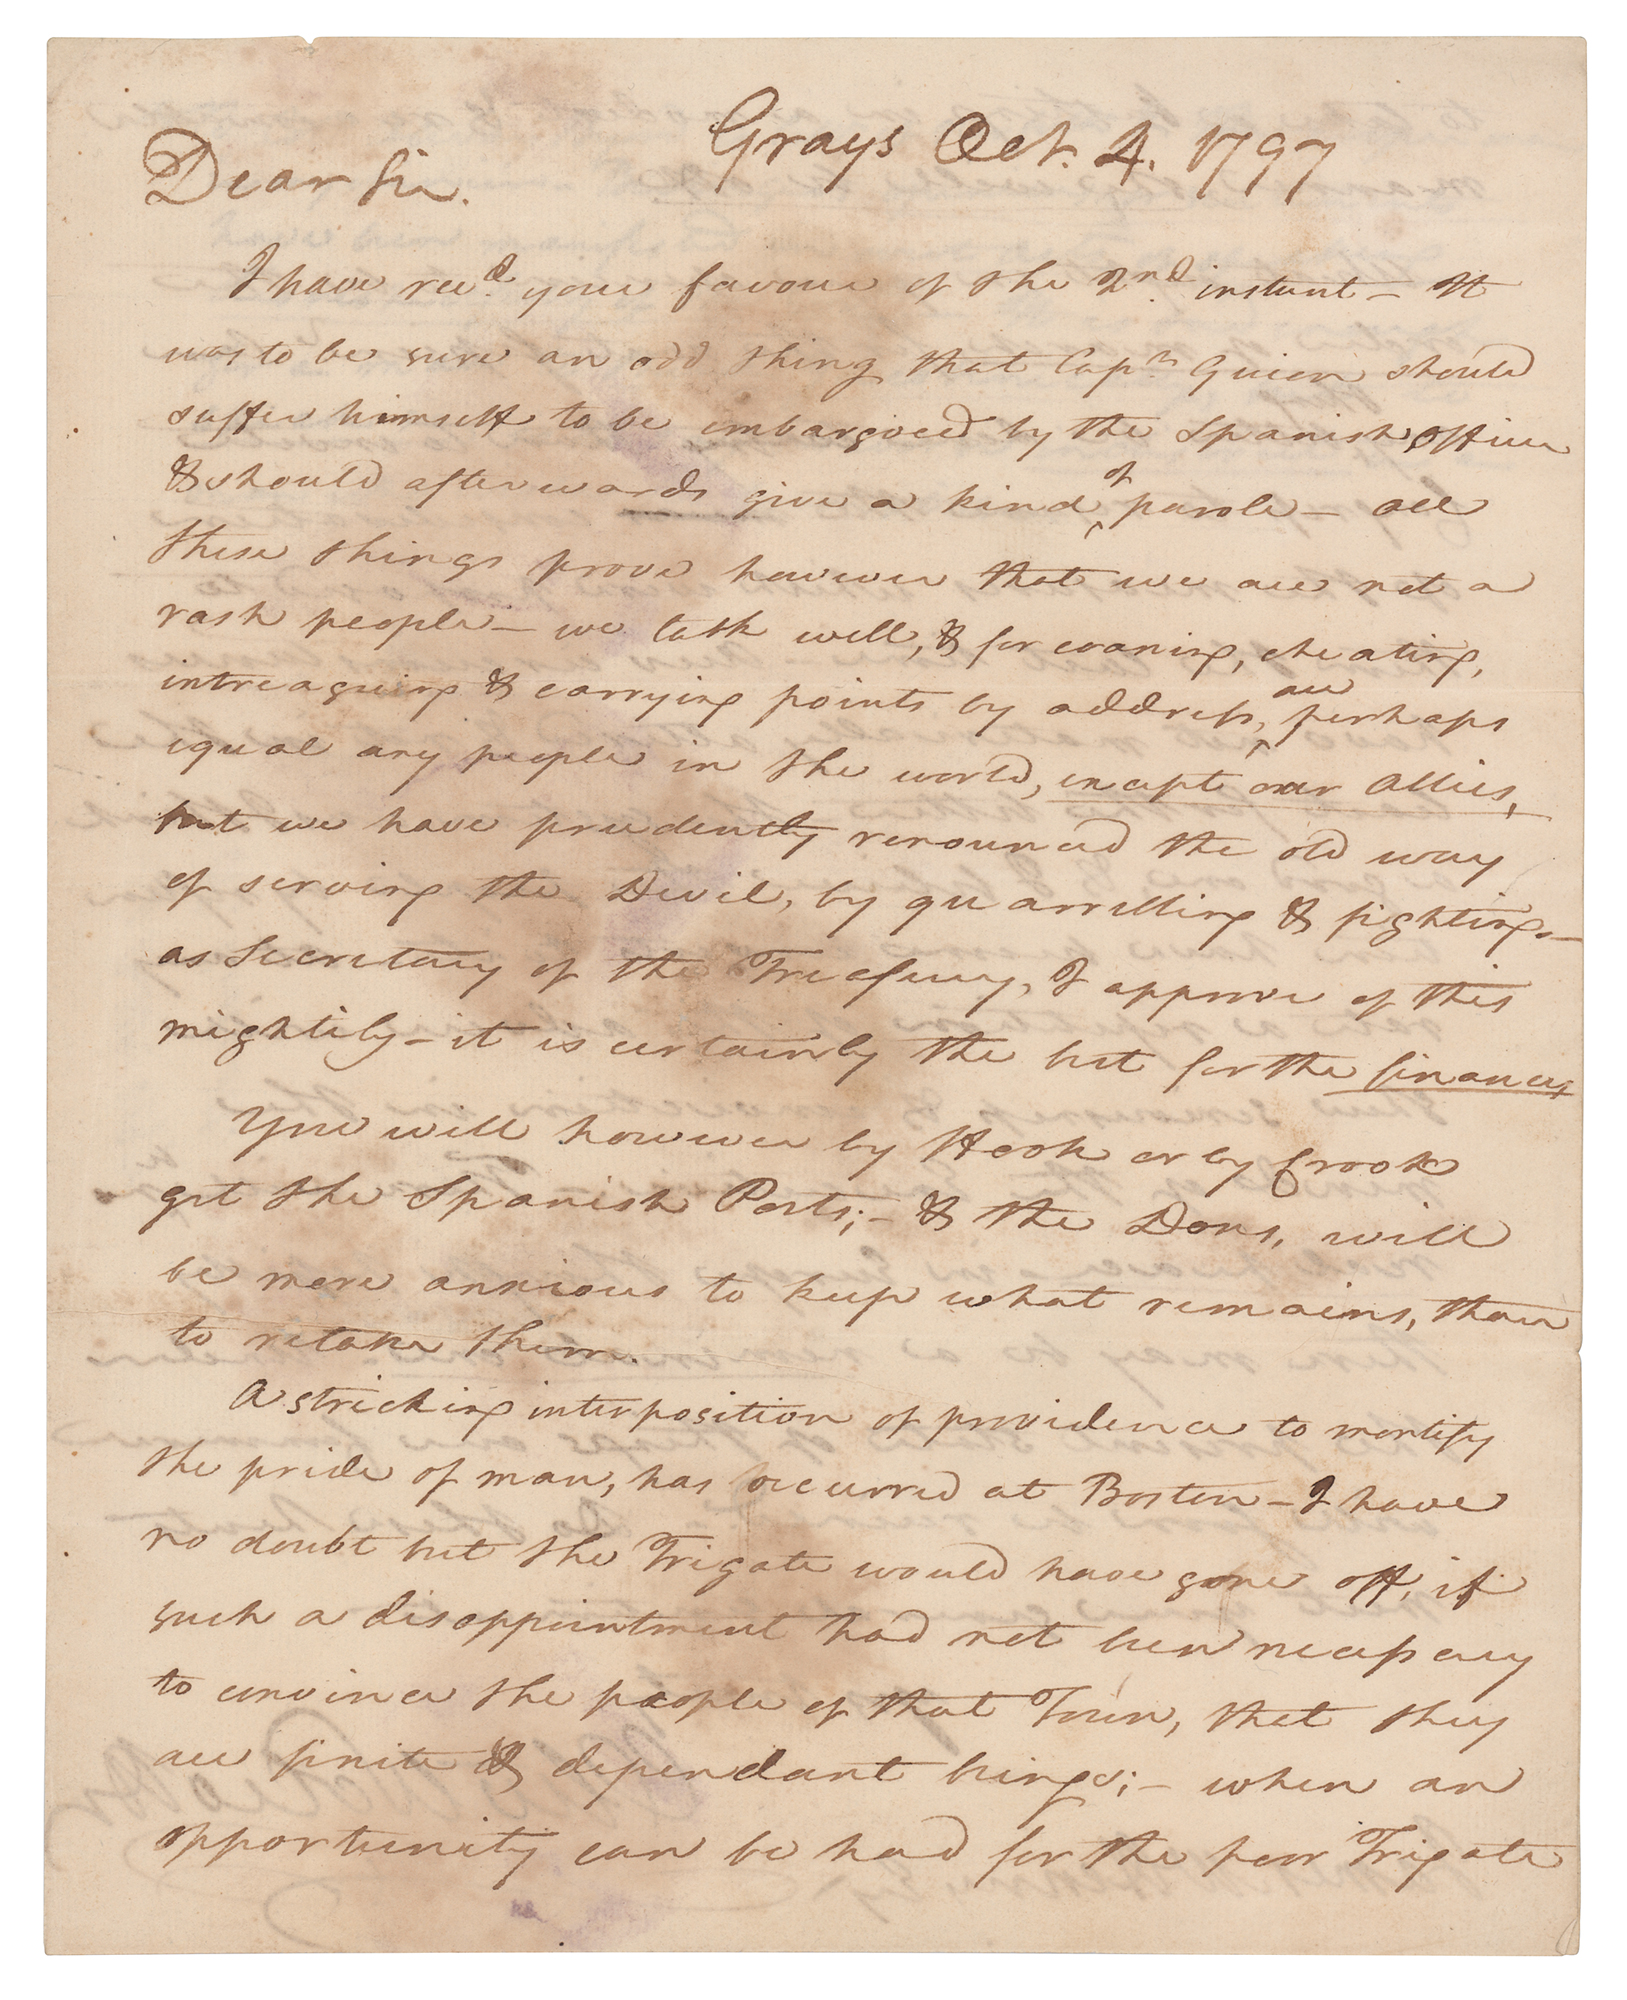 Grays Oct. 4. 1797
Dear Sir.
I have recd. your favour of the 2nd. instant – It
was to be sure an odd thing that Capn. Guion should
suffer himself to be embargoed by the Spanish officer
& should afterwards give a kind of parole – all
these things prove however that we are not a
rash people – we talk well, & for coaxing, cheating,
intreaguing & carrying points by address, are perhaps
equal any people in the world, except our Allies,
but we have prudently renounced the old way
of serving the Devil, by quarrelling & fighting –
as Secretary of the Treasury, I approve of this
mightily – it is certainly the best for the finances
You will however by Hook or by Crook
get the Spanish Posts; – & the Dons, will
be more anxious to keep what remains, than
to retake them.
A stricking interposition of providence to mortify
the pride of man, has occurred at Boston – I have
no doubt but the Frigate would have gone off, if
such a disappointment had not been necessary
to convince the people of that Town, that they
are finite & dependant beings; – when an
opportunity can be had for the poor Frigate